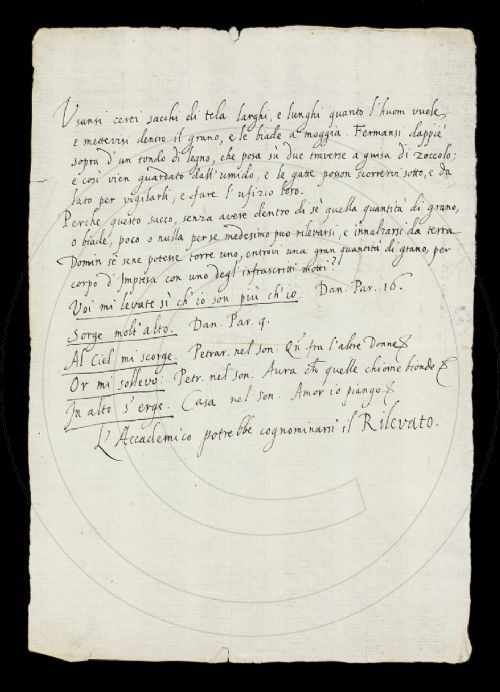 Usansi certi sacchi di tela larghi, e lunghi quanto l'huom vuole,
e mettevisi dentro il grano, e le biade a moggia. Fermansi dappiè
sopra d'un tondo di legno, che posa sù due traverse a guisa di zoccolo;
e così vien guardato dall'umido, e le gatte posson scorrervi sotto, e da
lato per vigilarli, e fare l'ufizio loro.
Perche questo sacco, senza avere dentro di sè quella quantità di grano,
o biade, poco o nulla per se medesimo può rilevarsi, e innalzarsi da terra
Domin se sene potesse torre uno, entrovi una gran quantità di grano, per
corpo d'Impresa con uno degl'infrascritti motti?
Voi mi levate sì ch'io son più ch'io. Dan. Par. 16.
Sorge molt'alto. Dan. Par. 9.
Al Ciel mi scorge. Petrar. nel son. Qñ fra l'altre Donne
Or mi sollevo: Petr. nel son. Aura che quelle chiome bionde
In alto s'erge. Casa nel son. Amor io piango
L'Accademico potrebbe cognominarsi il Rilevato.